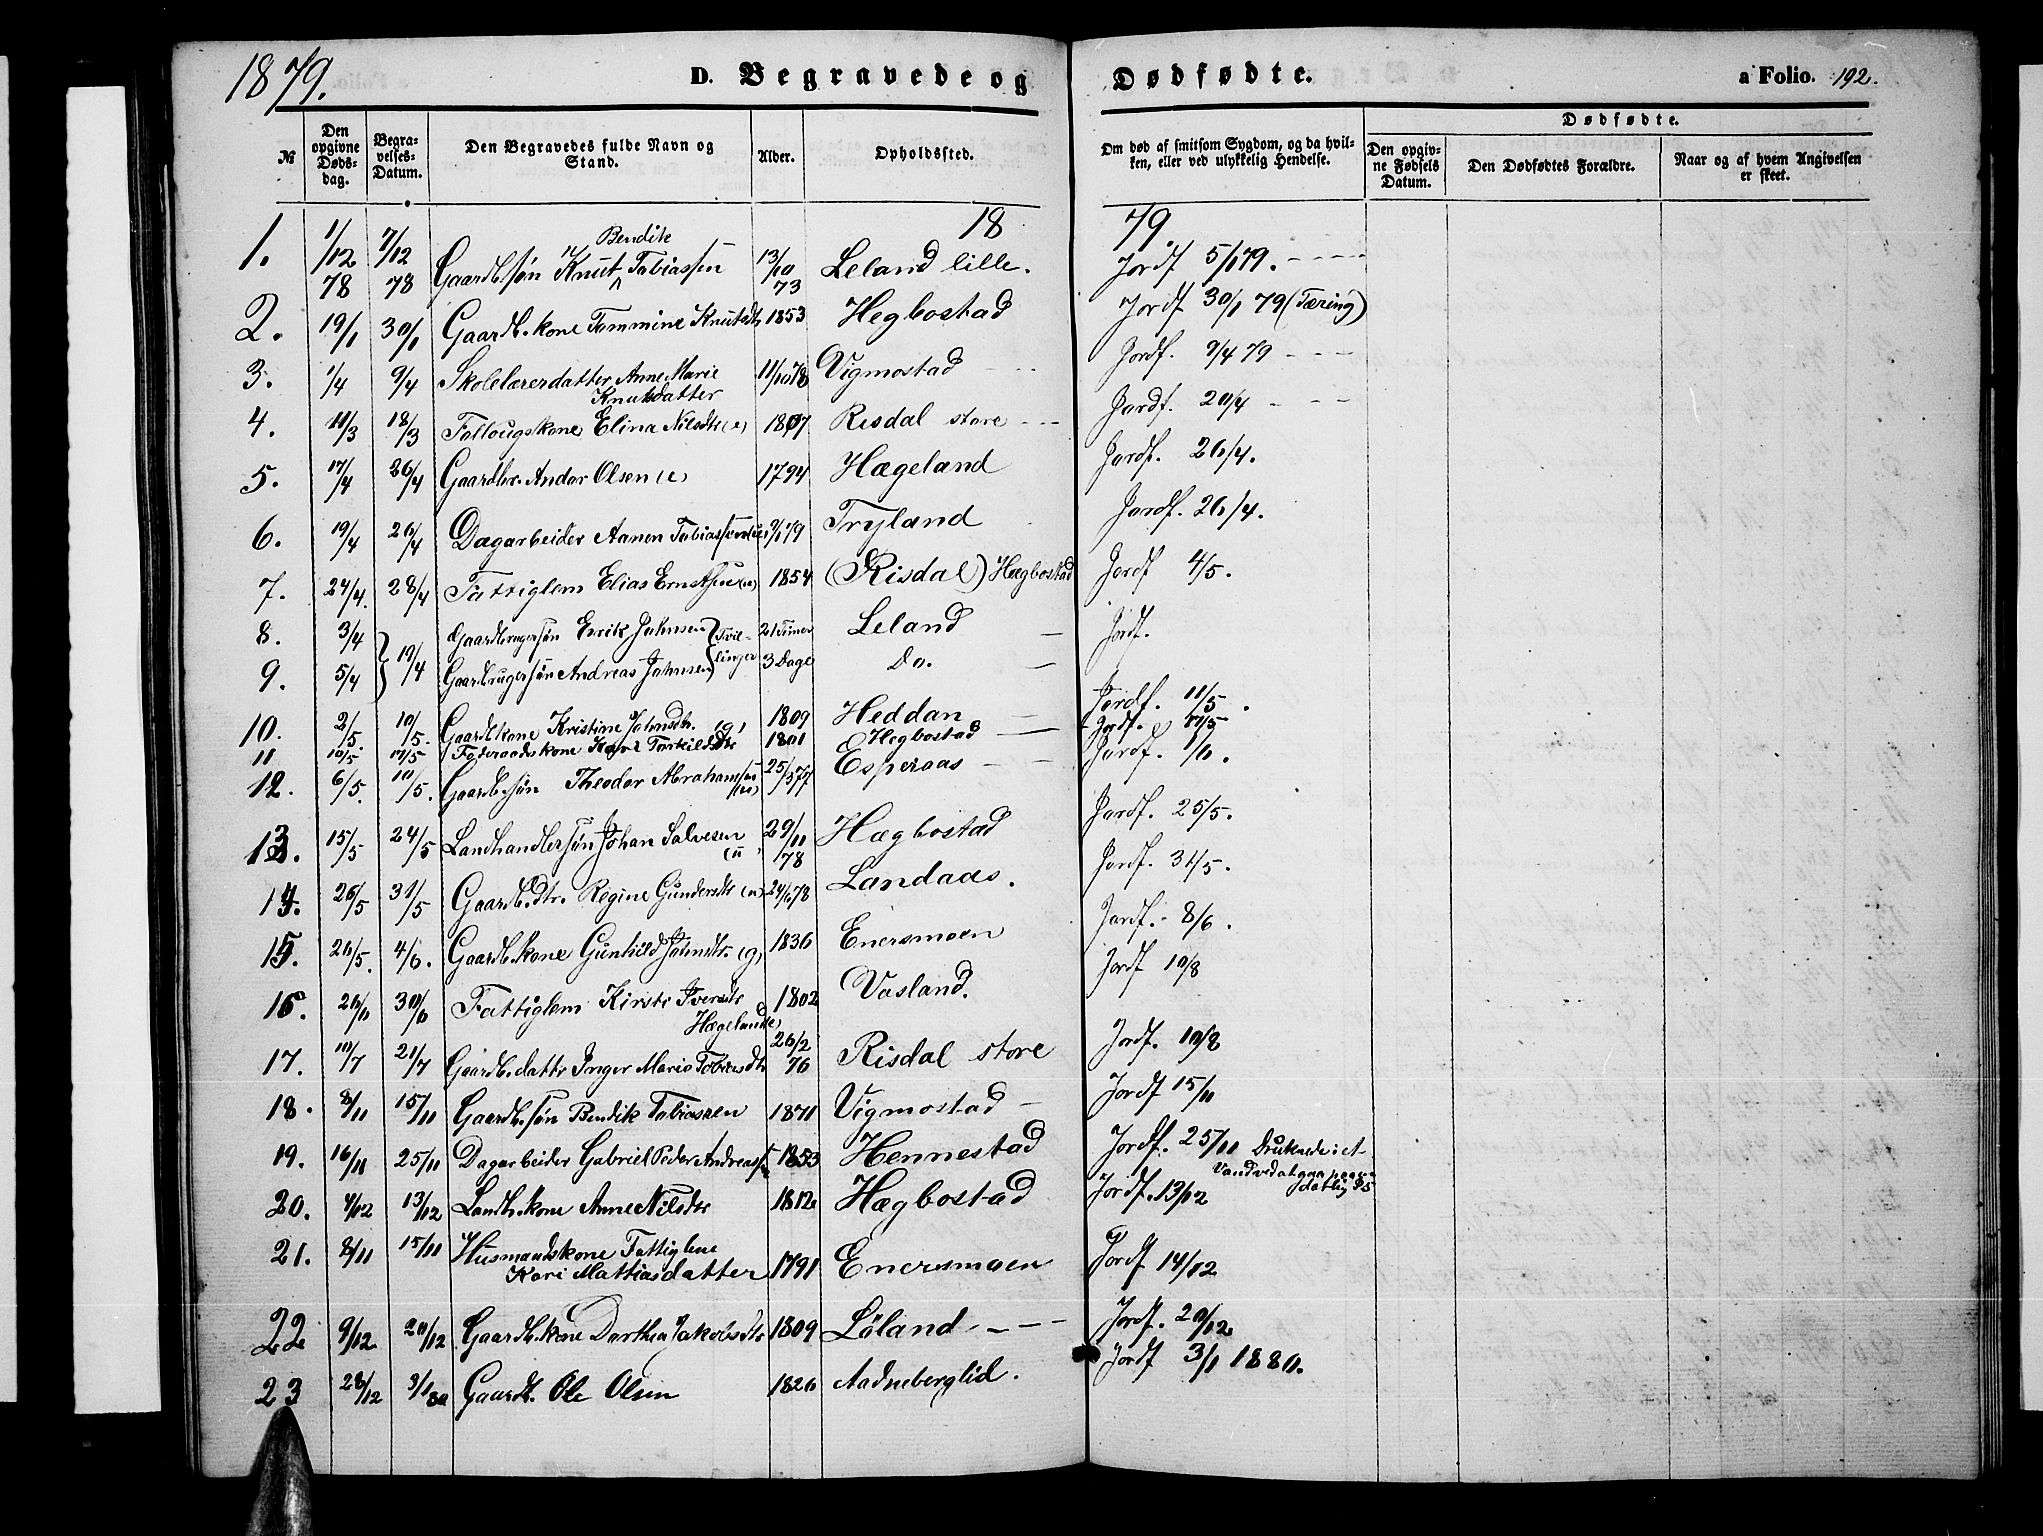 1879.
D. Begravede og Dødfødte.
a Folio. 192.
№ | Den opgivne Døds-dag. | Begra-velses-Datum. | Den Begravedes fulde Navn og Stand. | Alder. | Opholdssted. | Om død af smitsom Sygdom, og da hvil-ken, eller ved ulykkelig Hendelse. | Dødfødte. | Den opgiv-ne Fødsels Datum. | Den Dødfødtes Forældre. | Naar og af hvem Angivelsen er skeet.
1879.
1. 1/12 78 7/12 78 Gaardb. søn Knut Bendik Tobiassen 13/10 73 Leland lille. Jordf 5/1 79.
2. 19/1 30/1 Gaardb. kone Tommine Knutsdtr 1853 Hegbostad Jordf 30/1 79 (Tæring)
3. 1/4 9/4 Skolelærerdatter Anne Marie Knutsdatter 11/10 78 Vigmostad Jordf. 9/4 79
4. 11/3 18/3 Follougskone Elina Nilsdtr (e) 1807 Risdal store Jordf. 20/4
5. 17/4 26/4 Gaardbr. Andor Olsen (e) 1794 Hægeland Jordf. 26/4.
6. 19/4 26/4 Dagarbeider Aanen Tobiassen Tryland Jordf. 26/4.
7. 24/4. 28/4 Fattiglem Elias Ernstsen (u) 1854 (Risdal) Hægbostad Jordf 4/5.
8. 3/4 Gaardbrugersøn Enrik Jahnsen Tvil- 21 Timer Leland Jordf.
9. 5/4 19/4 Gaardbrugersøn Andreas Jahnsen linger 3 Dage Do.
10. 2/5. 10/5. Gaardb. kone Kristine Johnsdtr. (g) 1809 Heddan Jordf. 11/5.
11 10/5 17/5 Føderaadskone Torkildsdtr 1801 Hegbostad Jordf.
12. 6/5. 10/5. Gaardb. søn Theodor Abrahamsen (u) 25/5 77 Esperaas Jordf. 1/6.
13. 15/5 24/5 Landhandlersøn Johan Salvesen (u) 29/11 78 Hægbostad Jordf. 25/5.
14. 26/5 31/5 Gaardb. dtr. Regine Gundersdtr (u) 24/6 78 Landaas. Jordf. 31/5.
15. 26/5. 4/6. Gaardb. kone Gunhild Johnsdtr. (g) 1836 Enersmoen Jordf. 8/6.
16. 26/6 30/6 Fattiglem Kirsti Iversdtr Hægeland (e) 1802 Vasland. Jordf 10/8
17. 10/7 21/7 Gaardb. dattr Inger Marie Tobiasdtr 26/2 76 Risdal store Jordf. 10/8
18. 8/11 15/11 Gaardb. søn Bendik Tobiassen 1871 Vigmostad Jordf 15/11
19. 16/11 25/11 Dagarbeider Gabriel Peder Andreass. 1853 Hennestad Jordf. 25/11 Druknede i et
20. 4/12 13/12 Landh. kone Anne Nilsdtr 1812 Hægbostad Jordf. 13/12
21. 8/11 15/11 Husmandskone Fattiglem Kari Mattiasdatter 1791 Enersmoen Jordf 14/12
22 9/12 20/12 Gaardb. kone Dorthea Jakobsdtr 1809 Löland Jordf. 20/12
23 28/12 3/1 80 Gaardb. Ole Olsen 1826 Aadneberglid. Jordf 3/1 1880.